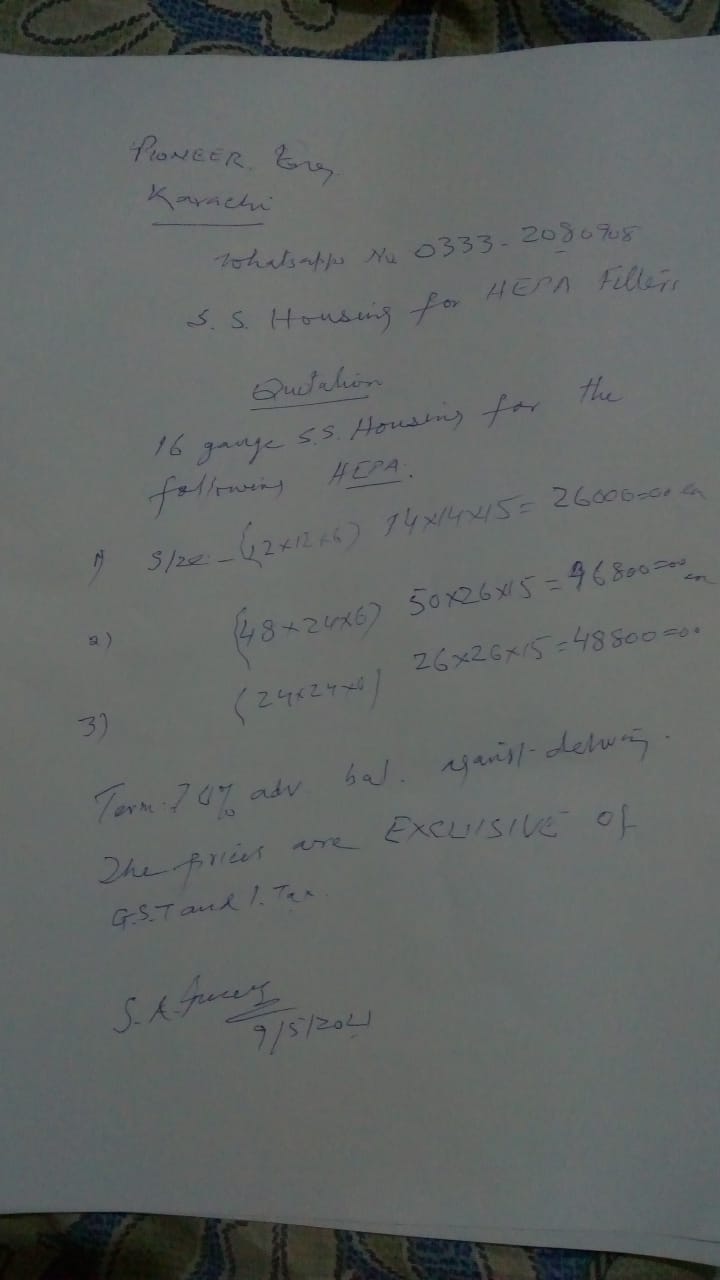 PIONEER Eng
Karachi
Whatsapp No 0333-2080908
S. S. Housing for HEPA Filters
Quotation
16 gauge S.S. Housing for the
following HEPA.
1) Size - (12x12x6) 14x14x15 = 26000=00 ea
2) (48x24x6) 50x26x15 = 96800=00 ea
3) (24x24x6) 26x26x15 = 48800=00
Term: 70% adv bal. against delivery.
The prices are EXCLUSIVE of
G.S.T and I. Tax.
S. A.
9/5/2021